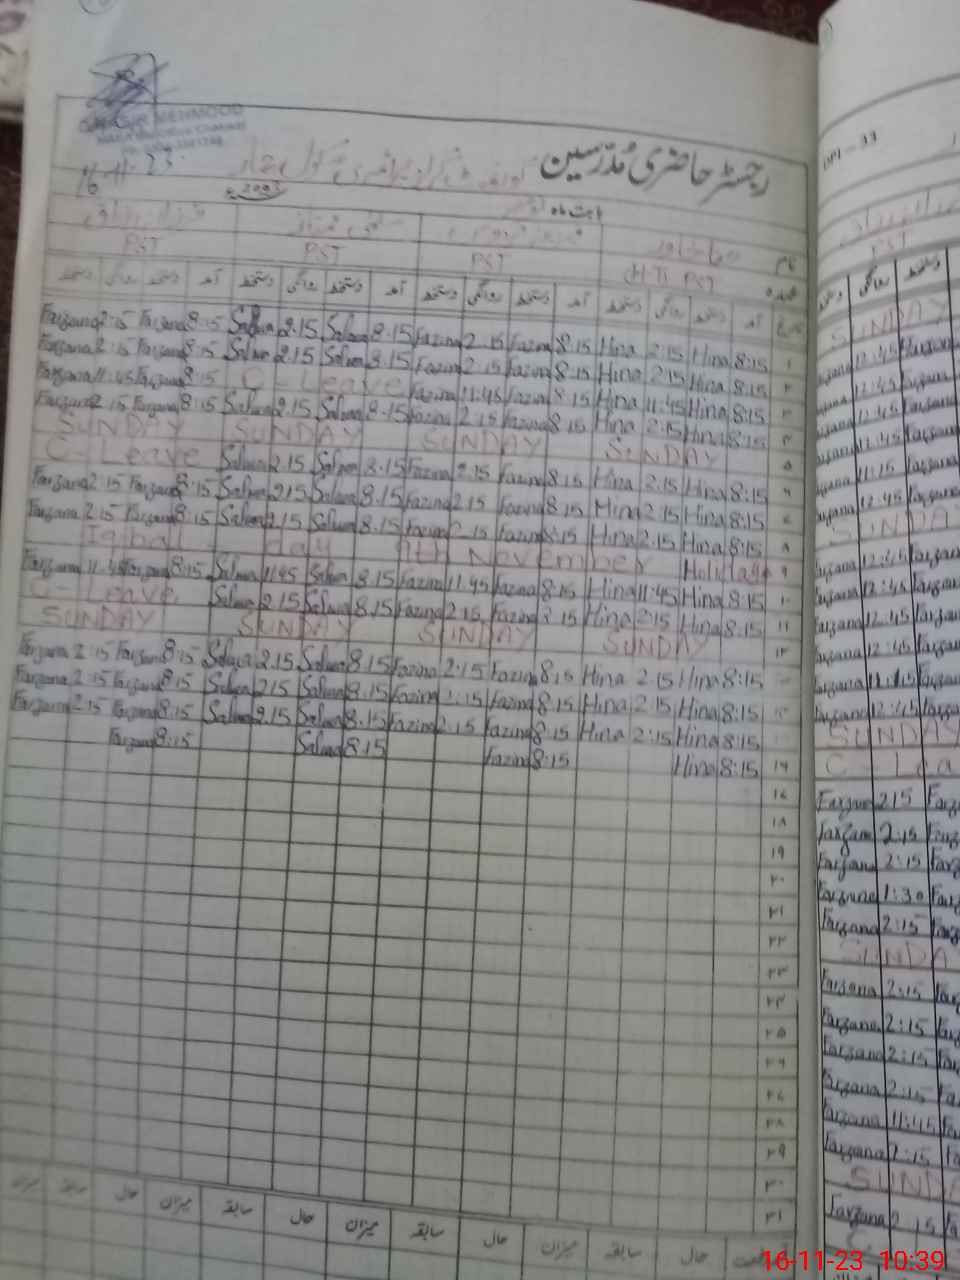 MEHMOOD
16-11-23
رجسٹر حاضری مُدرّسین
بابت ماہ
نام
PST PST PST (H.T) PST عہدہ
دستخط روانگی دستخط آمد دستخط روانگی دستخط آمد دستخط روانگی دستخط آمد دستخط روانگی دستخط آمد تاریخ
Farzana 2:15 Farzana 8:15 Salma 2:15 Salma 8:15 Fazina 2:15 Fazina 8:15 Hina 2:15 Hina 8:15 ۱
Farzana 2:15 Farzana 8:15 Salma 2:15 Salma 8:15 Fazina 2:15 Fazina 8:15 Hina 2:15 Hina 8:15 ۲
Farzana 11:45 Farzana 8:15 C-Leave Fazina 11:45 Fazina 8:15 Hina 11:45 Hina 8:15 ۳
Farzana 2:15 Farzana 8:15 Salma 2:15 Salma 8:15 Fazina 2:15 Fazina 8:15 Hina 2:15 Hina 8:15 ۴
SUNDAY SUNDAY SUNDAY SUNDAY ۵
C-Leave Salma 2:15 Salma 8:15 Fazina 2:15 Fazina 8:15 Hina 2:15 Hina 8:15 ۶
Farzana 2:15 Farzana 8:15 Salma 2:15 Salma 8:15 Fazina 2:15 Fazina 8:15 Hina 2:15 Hina 8:15 ۷
Farzana 2:15 Farzana 8:15 Salma 2:15 Salma 8:15 Fazina 2:15 Fazina 8:15 Hina 2:15 Hina 8:15 ۸
Iqbal day 9th November Holiday ۹
Farzana 11:45 Farzana 8:15 Salma 11:45 Salma 8:15 Fazina 11:45 Fazina 8:15 Hina 11:45 Hina 8:15 ۱۰
C-Leave Salma 2:15 Salma 8:15 Fazina 2:15 Fazina 8:15 Hina 2:15 Hina 8:15 ۱۱
SUNDAY SUNDAY SUNDAY SUNDAY ۱۲
Farzana 2:15 Farzana 8:15 Salma 2:15 Salma 8:15 Fazina 2:15 Fazina 8:15 Hina 2:15 Hina 8:15
Farzana 2:15 Farzana 8:15 Salma 2:15 Salma 8:15 Fazina 2:15 Fazina 8:15 Hina 2:15 Hina 8:15
Farzana 2:15 Farzana 8:15 Salma 2:15 Salma 8:15 Fazina 2:15 Fazina 8:15 Hina 2:15 Hina 8:15
Farzana 8:15 Salma 8:15 Fazina 8:15 Hina 8:15 ۱۶
۱۷
۱۸
۱۹
۲۰
۲۱
۲۲
۲۳
۲۴
۲۵
۲۶
۲۷
۲۸
۲۹
۳۰
۳۱
میزان سابقہ حال میزان سابقہ حال میزان سابقہ حال میزان سابقہ حال
PST
روانگی دستخط
SUNDAY
12:45 Farzana
12:45
12:45
11:45 Farzana
11:15 Farzana
12:45 Farzana
SUNDA
12:45 Farzana
12:45
12:45
12:45
11:15
12:45
SUNDAY
C-Lea
Farzana 2:15
Farzana 2:15
Farzana 2:15
Farzana 1:30
Farzana 2:15
SUNDA
Farzana 2:15
Farzana 2:15
Farzana 2:15
Farzana 2:15
Farzana 11:45
Farzana 2:15
SUNDA
Farzana 2:15
16-11-23 10:39